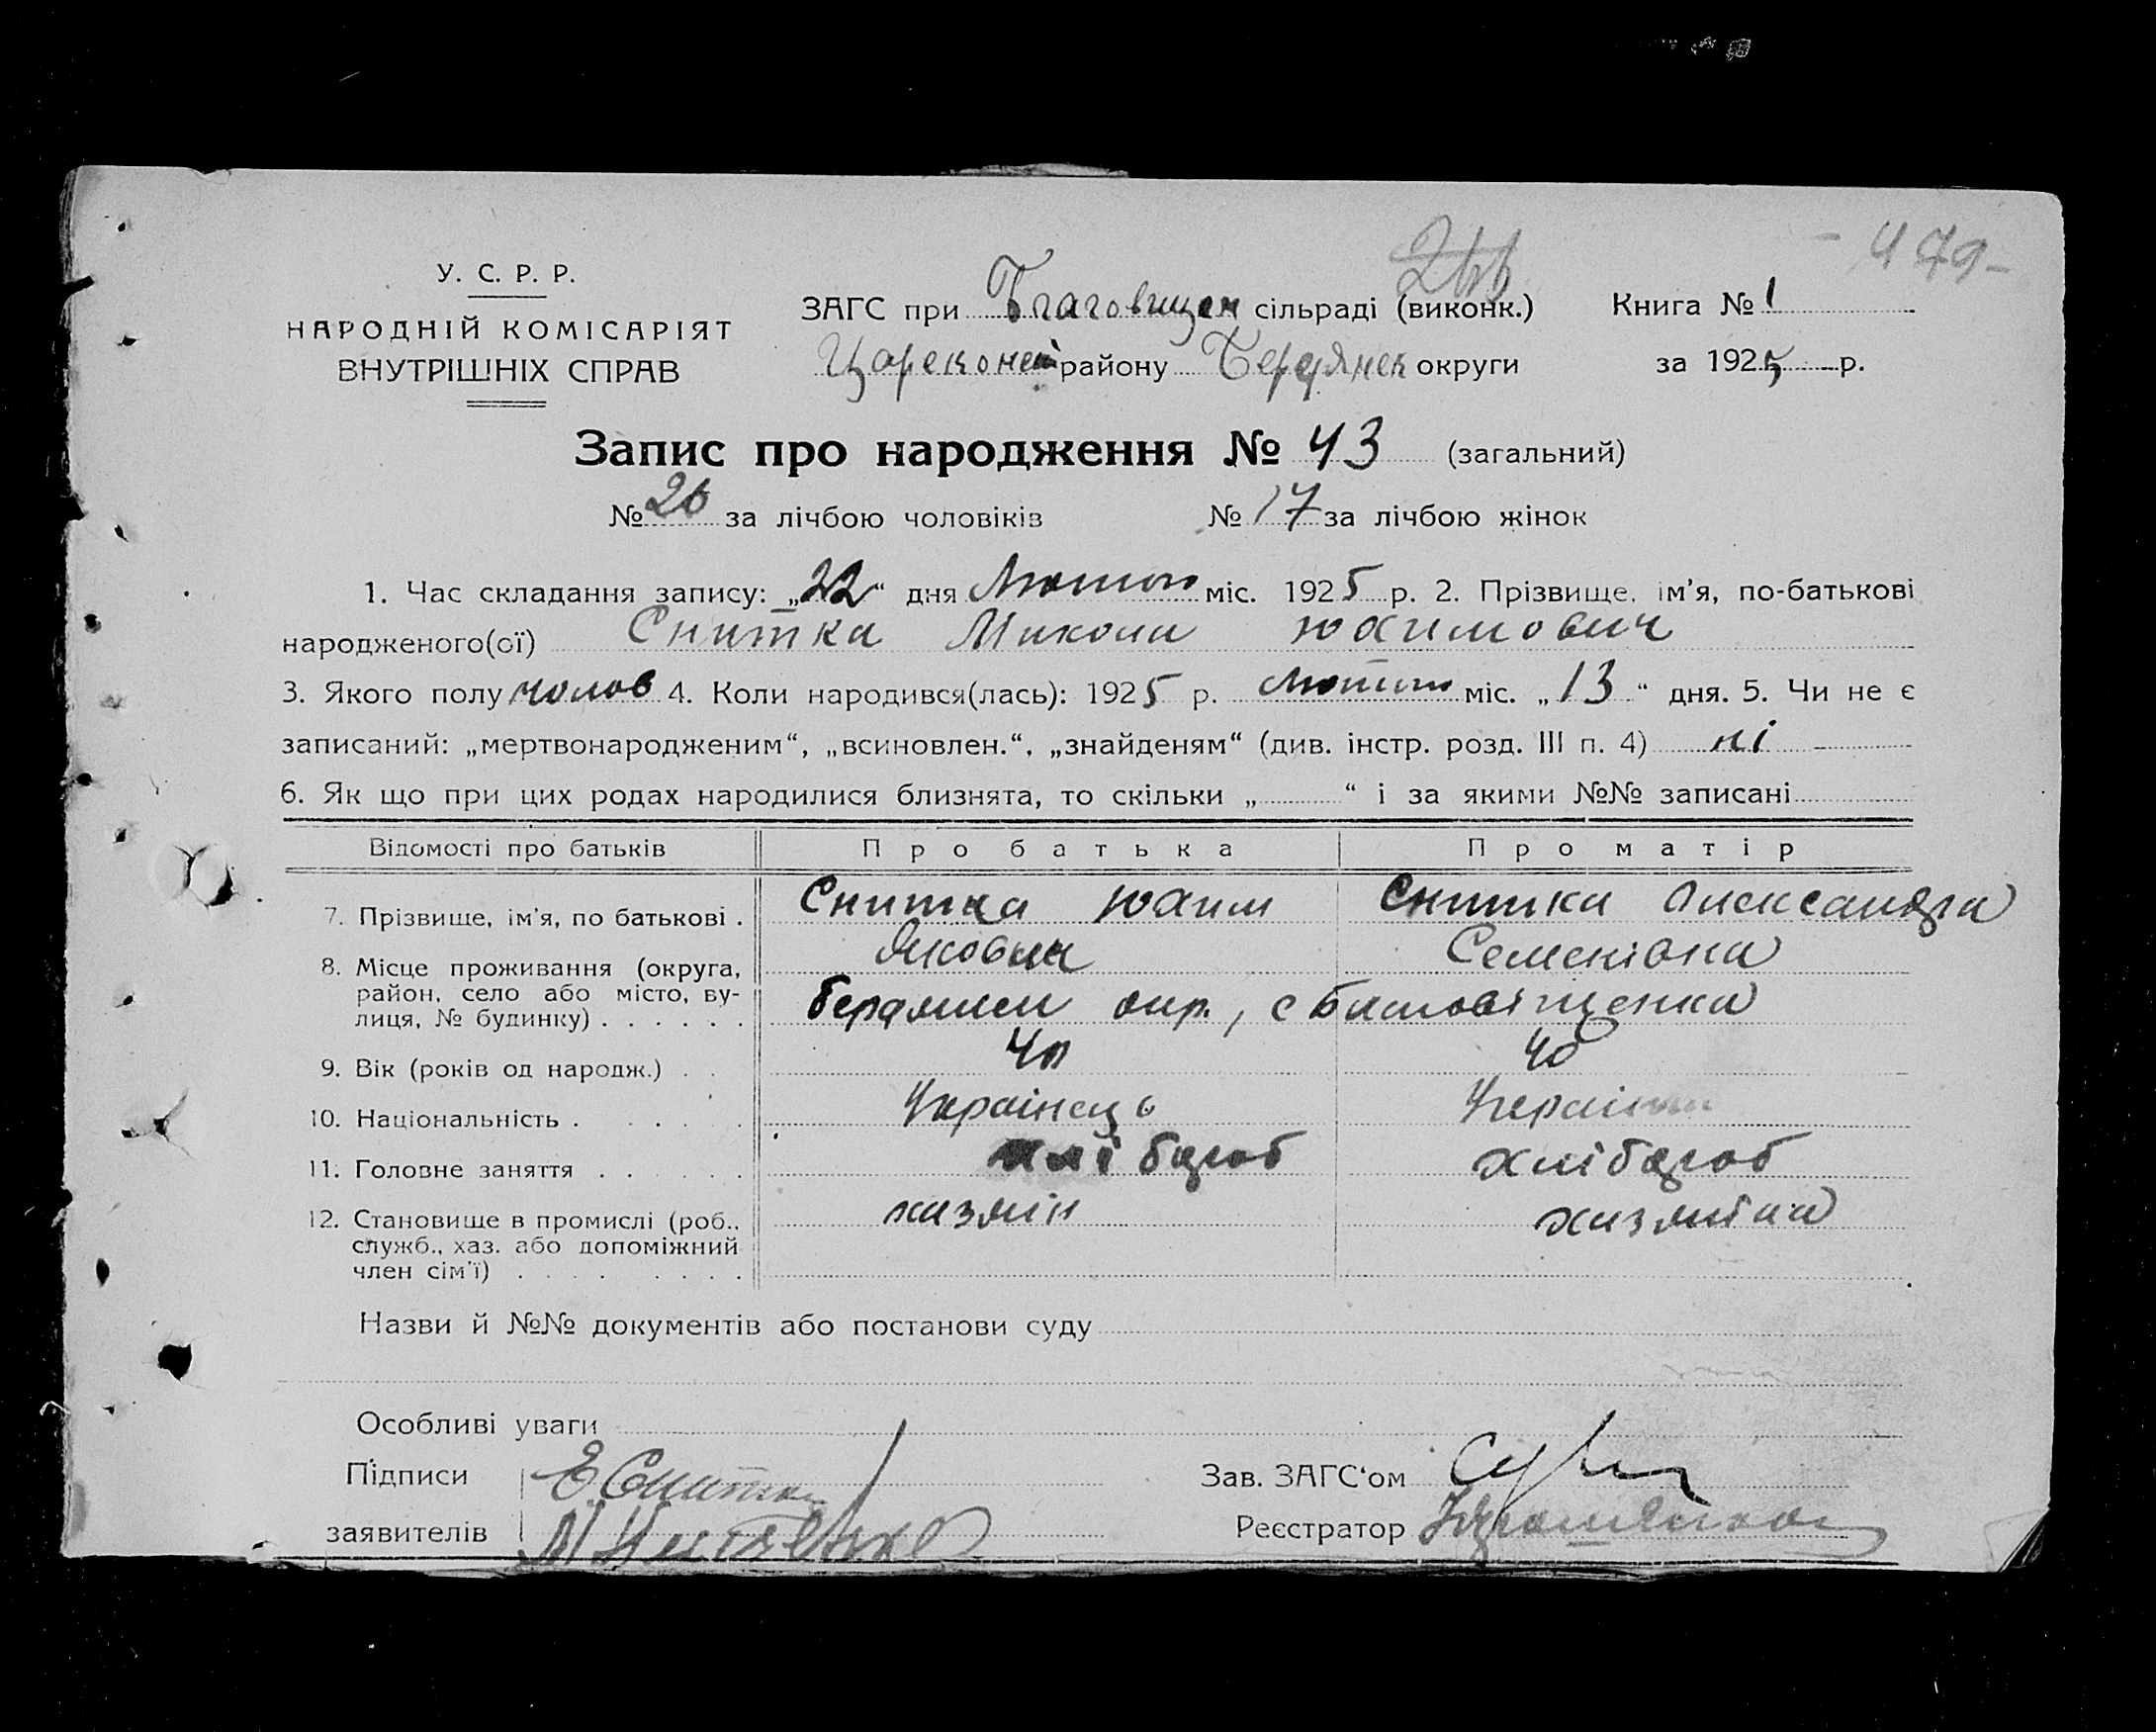 - 479 -
У. С. Р. Р.
НАРОДНІЙ КОМІСАРІЯТ
ВНУТРІШНІХ СПРАВ
ЗАГС при Благовищен сільраді (виконк.) Книга № 1
Цареконст району Бердянск округи за 1925 р.
Запис про народження № 43 (загальний)
№ 26 за лічбою чоловіків № 17 за лічбою жінок
1. Час складання запису: „22“ дня Лютого міс. 1925 р. 2. Прізвище, ім'я, по-батькові
народженого(ої) Снитка Микола Юхимович
3. Якого полу чолов 4. Коли народився(лась): 1925 р. Лютого міс. „13“ дня. 5. Чи не є
записаний: „мертвонародженим“, „всиновлен.“, „знайденям“ (див. інстр. розд. III п. 4) ні
6. Як що при цих родах народилися близнята, то скільки „ “ і за якими №№ записані
Відомості про батьків Про батька Про матір
7. Прізвище, ім'я, по батькові . Снитка Юхим Снитка Олександра
Якович Семенівна
8. Місце проживання (округа,
район, село або місто, ву-
лиця, № будинку) . . . . . . окр., с Благовіщенка
9. Вік (років од народж.) . . 40
10. Національність . . . . . Українець
11. Головне заняття . . . . . хлібороб хлібороб
12. Становище в промислі (роб., хазяін хазяйка
служб., хаз. або допоміжний
член сім'ї) . . . . . . . .
Назви й №№ документів або постанови суду
Особливі уваги
Підписи Е Снитка
заявителів
Зав. ЗАГС'ом
Реєстратор